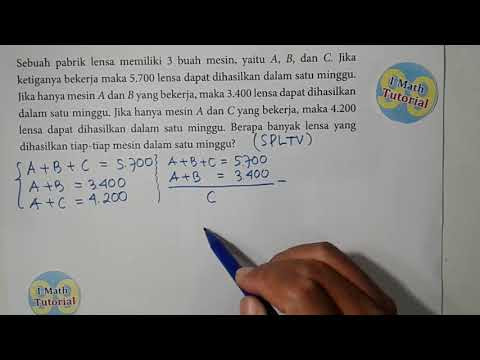 Sebuah pabrik lensa memiliki 3 buah mesin, yaitu A, B, dan C. Jika
ketiganya bekerja maka 5.700 lensa dapat dihasilkan dalam satu minggu.
Jika hanya mesin A dan B yang bekerja, maka 3.400 lensa dapat dihasilkan
dalam satu minggu. Jika hanya mesin A dan C yang bekerja, maka 4.200
lensa dapat dihasilkan dalam satu minggu. Berapa banyak lensa yang
dihasilkan tiap-tiap mesin dalam satu minggu? (SPLTV)
I Math
Tutorial
A + B + C = 5.700
A + B = 3.400
A + C = 4.200
A + B + C = 5700
A + B = 3.400
C
I Math
Tutorial